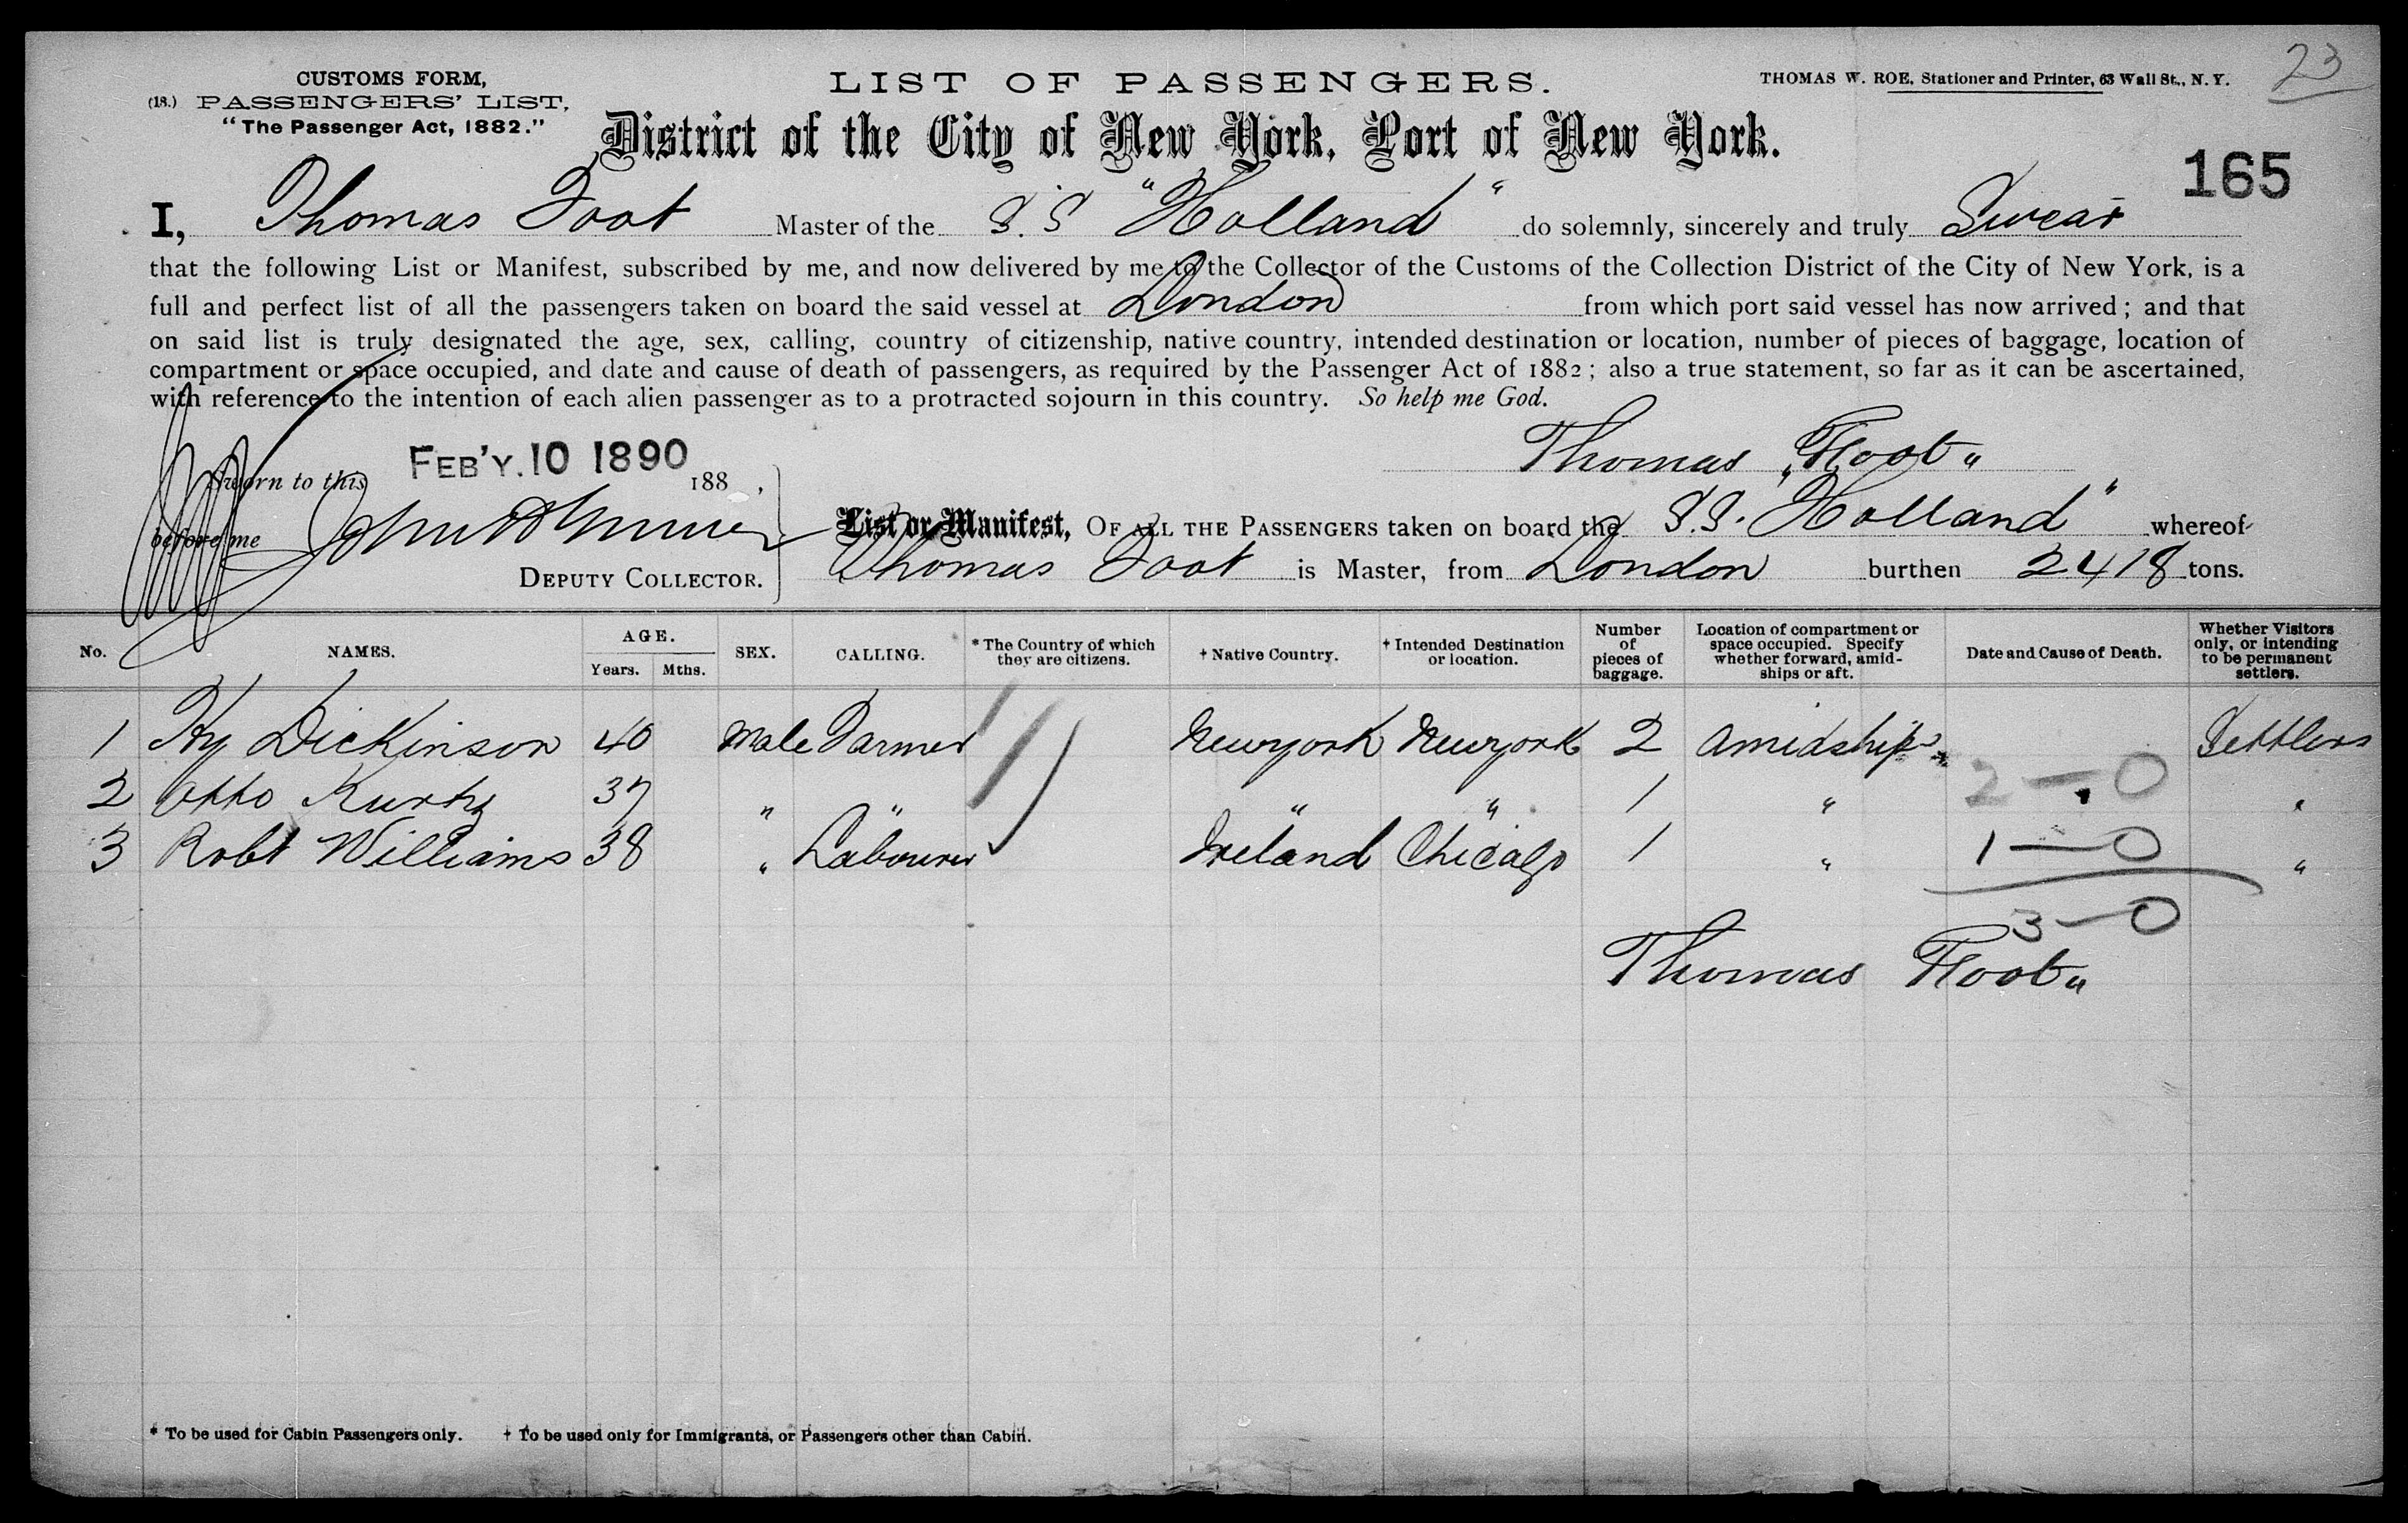 23
CUSTOMS FORM,
(18.) PASSENGERS' LIST,
"The Passenger Act, 1882."
LIST OF PASSENGERS.
THOMAS W. ROE, Stationer and Printer, 63 Wall St., N. Y.
District of the City of New York, Port of New York.
165
I, Thomas Foot Master of the S.S "Holland" do solemnly, sincerely and truly Swear
that the following List or Manifest, subscribed by me, and now delivered by me to the Collector of the Customs of the Collection District of the City of New York, is a
full and perfect list of all the passengers taken on board the said vessel at London from which port said vessel has now arrived; and that
on said list is truly designated the age, sex, calling, country of citizenship, native country, intended destination or location, number of pieces of baggage, location of
compartment or space occupied, and date and cause of death of passengers, as required by the Passenger Act of 1882; also a true statement, so far as it can be ascertained,
with reference to the intention of each alien passenger as to a protracted sojourn in this country. So help me God.
Thomas "Foot"
Sworn to this FEB'Y. 10 1890 188 ,
before me
DEPUTY COLLECTOR.
List or Manifest, OF ALL THE PASSENGERS taken on board the S.S. Holland" whereof
Thomas Foot is Master, from London burthen 2418 tons.
No. NAMES. AGE. Years. Mths. SEX. CALLING. * The Country of which they are citizens. † Native Country. † Intended Destination or location. Number of pieces of baggage. Location of compartment or space occupied. Specify whether forward, amidships or aft. Date and Cause of Death. Whether Visitors only, or intending to be permanent settlers.
1 Hy Dickinson 40 Male Farmer Newyork Newyork 2 Amidships Settlers
2 Otto Kurtz 37 " " " " 1 " 2-0 "
3 Robt Williams 38 " Labourer Ireland Chicago 1 " 1-0 "
3-0
Thomas Foot"
* To be used for Cabin Passengers only. † To be used only for Immigrants, or Passengers other than Cabin.